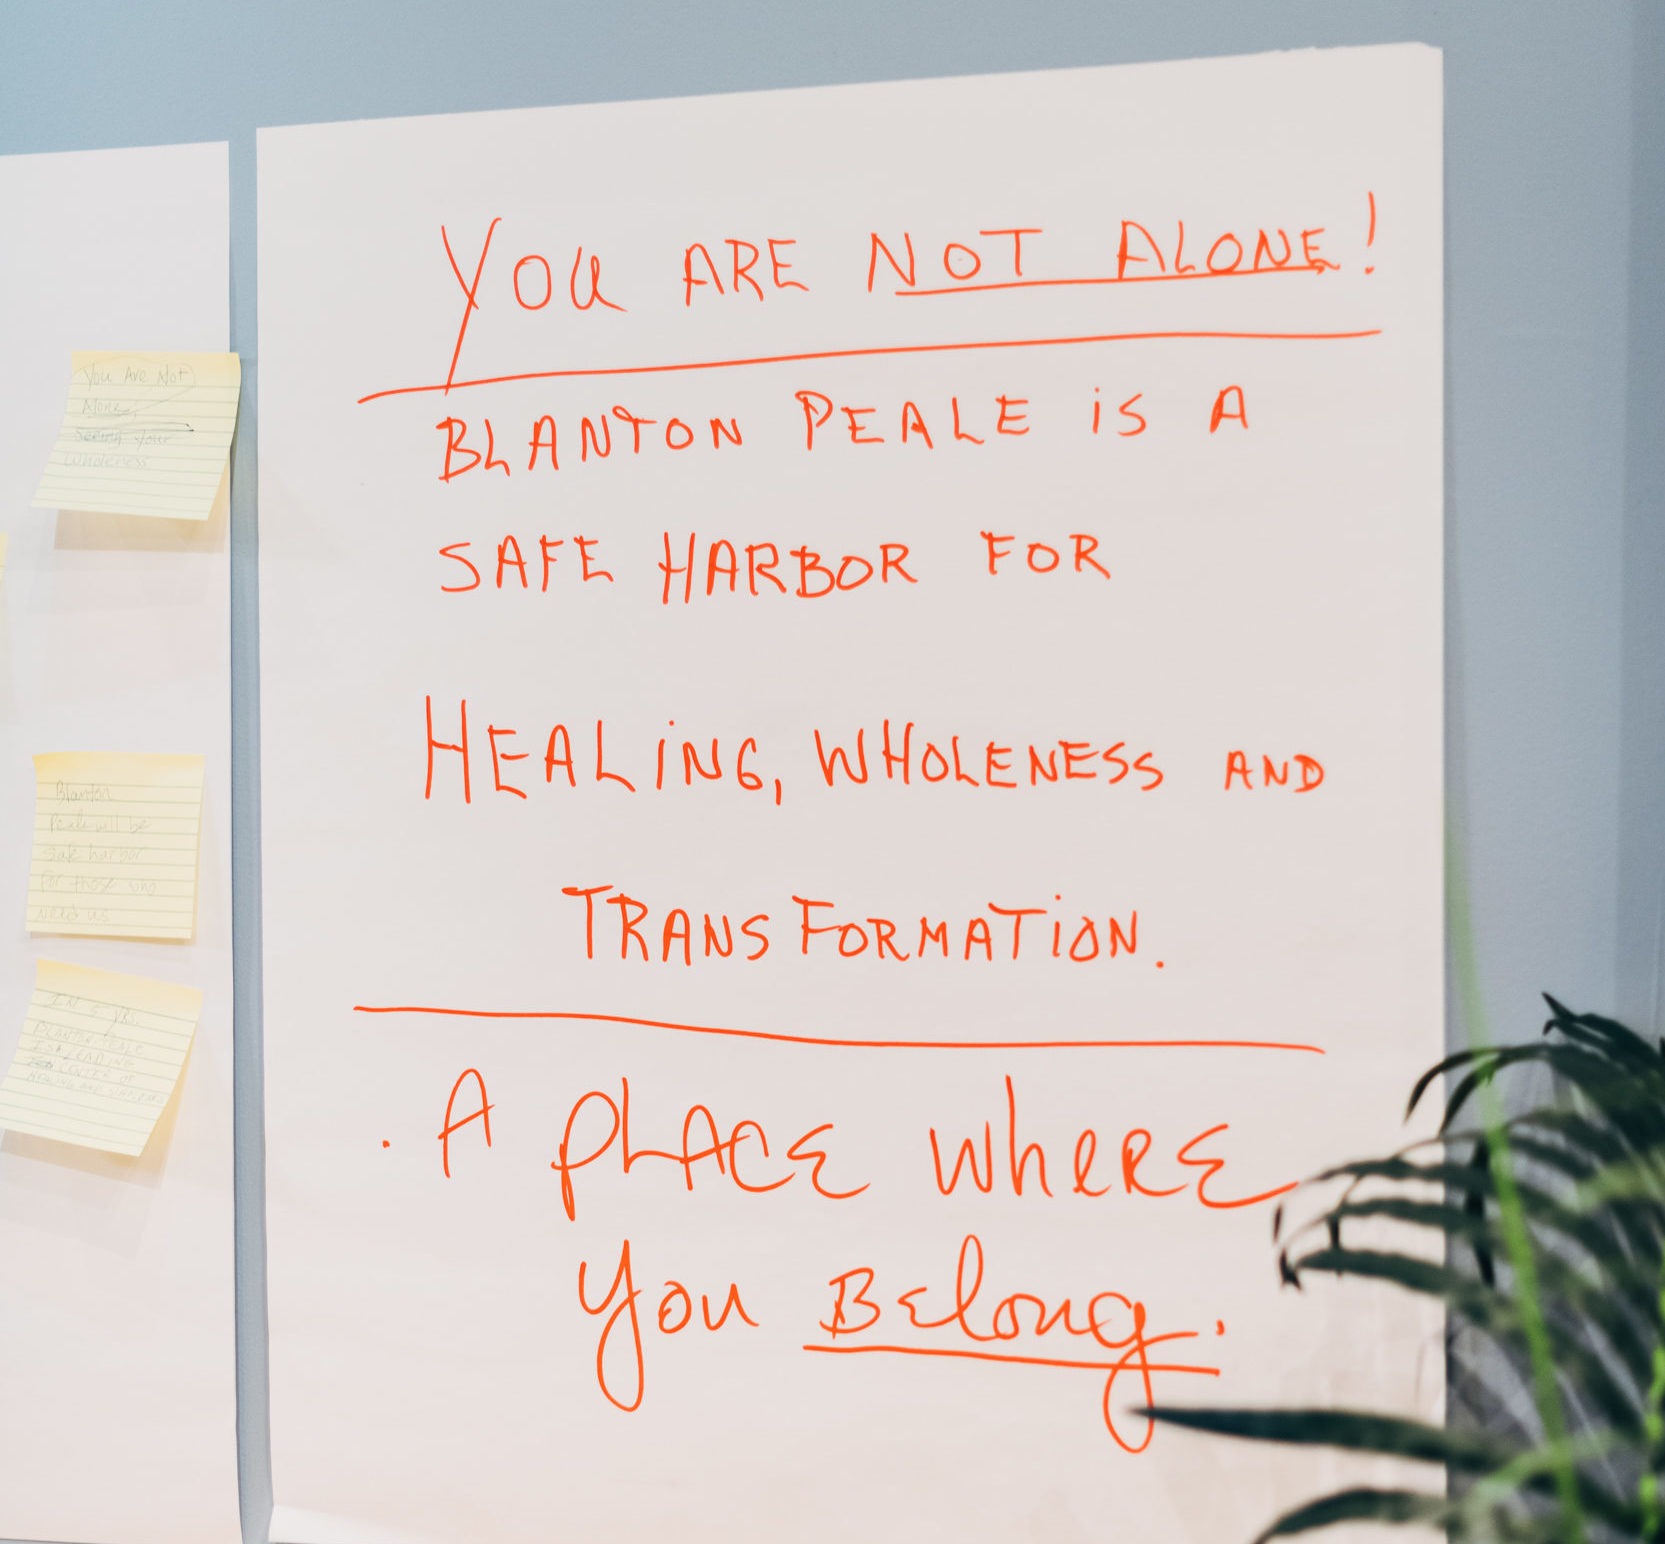 You Are Not
Alone;
Seeing Your
Wholeness
Blanton
Peale will be
safe harbor
for those who
need us
IN 5 YRS.
BLANTON PEALE
IS A LEADING
CENTER OF
HEALING AND
YOU ARE NOT ALONE!
BLANTON PEALE iS A
SAFE HARBOR FOR
HEALiNG, WHOLENESS AND
TRANSFORMATiON.
. A PLACE WhERE
You BELong.